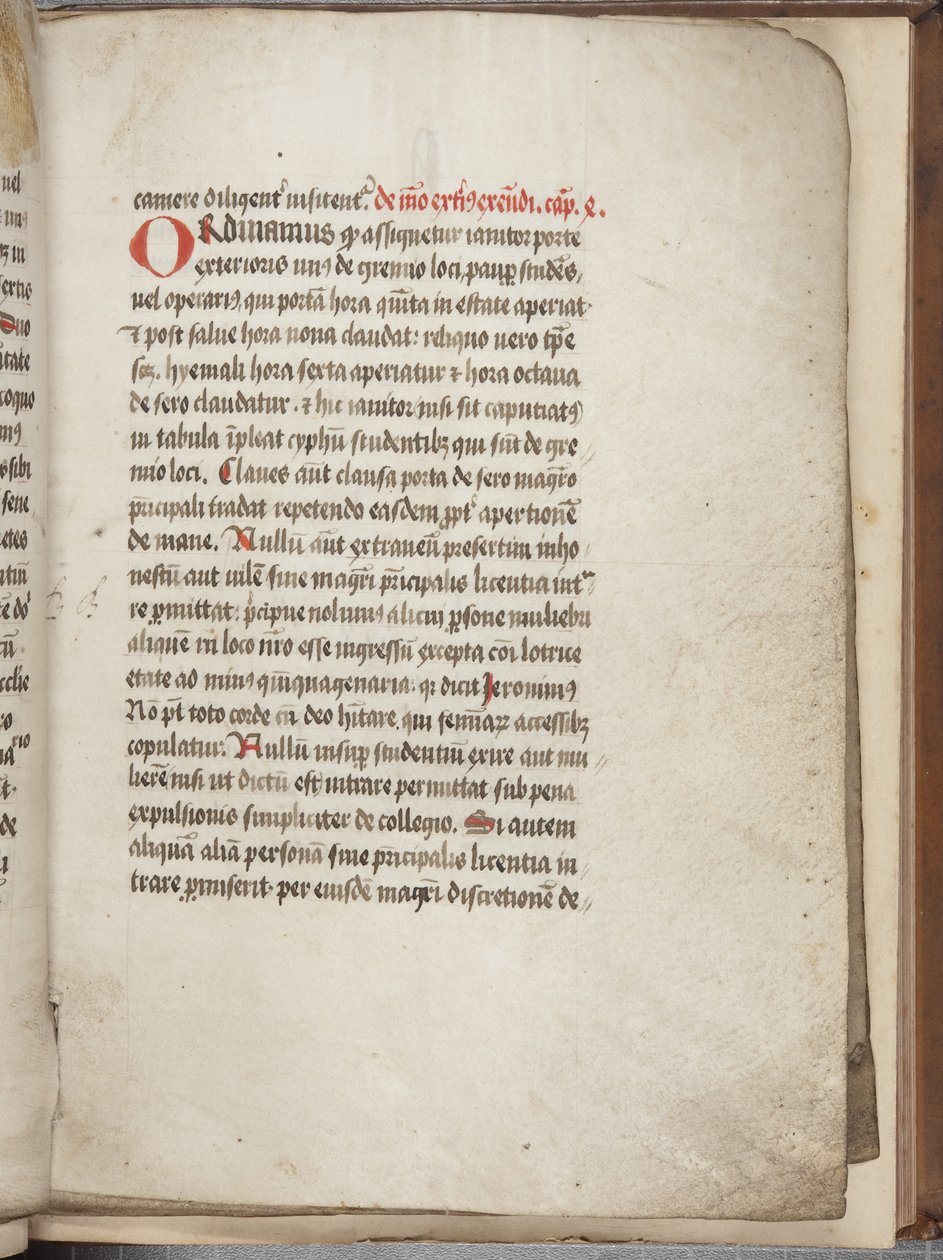 camere diligent᷑ visitent᷑. de mo͞ ext᷑iꝯ exeu͞di. cap͞. x.
ORdinamus qͥ assignetur ianitor porte
exterioris vnꝯ de gremio loci, paup͞ꝝ stude͞s,
vel operariꝯ, qui porta͞ hora qui͞ta in estate aperiat
⁊ post salue hora nona claudat: reliquo vero tp͞e
scꝫ. hyemali hora sexta aperiatur ⁊ hora octaua
de sero claudatur. ⁊ hic ianitor nisi sit caputiatꝯ
in tabula i͞pleat cyphu͞ studentibꝫ qui su͞t de gre
mio loci. Claues au͞t clausa porta de sero magr͞o
pri͞cipali tradat repetendo easdem ꝓpt᷑ apertione͞
de mane. Nullu͞ au͞t extraneu͞ presertim inho
nestu͞ aut vile͞ sine magr͞i pri͞cipalis licentia int᷑
re ꝑmittat: p͛cipue nolumꝯ alicui ꝑsone muliebri
alique͞ in loco nr͞o esse ingressu͞ excepta co͞i lotrice
etate ad minꝯ qui͞quagenaria: qꝛ dicit Jeronimꝯ
No͞ pt͞ toto corde cu͞ deo hi͞tare, qui femi͞aꝝ accessibꝫ
copulatur. Nullu͞ insuꝑ studentiu͞ exire aut mu
liere͞ nisi vt dictu͞ est intrare permittat sub pena
expulsionis simpliciter de collegio. Si autem
aliqua͞ alia͞ persona͞ sine pri͞cipalis licentia in
trare ꝑmiserit. per eiusde͞ magr͞i discretione͞ de